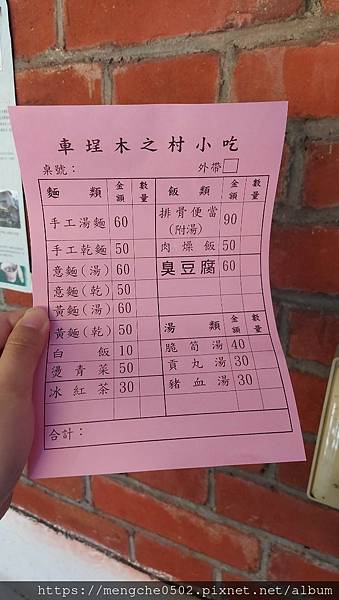 車埕木之村小吃
桌號： 外帶
麵類 金額 數量 飯類 金額 數量
手工湯麵 60 排骨便當(附湯) 90
手工乾麵 50 肉燥飯 50
意麵(湯) 60 臭豆腐 60
意麵(乾) 50
黃麵(湯) 60
黃麵(乾) 50 湯類 金額 數量
白飯 10 脆筍湯 40
燙青菜 50 貢丸湯 30
冰紅茶 30 豬血湯 30
合計：
https://mengche0502.pixnet.net/album